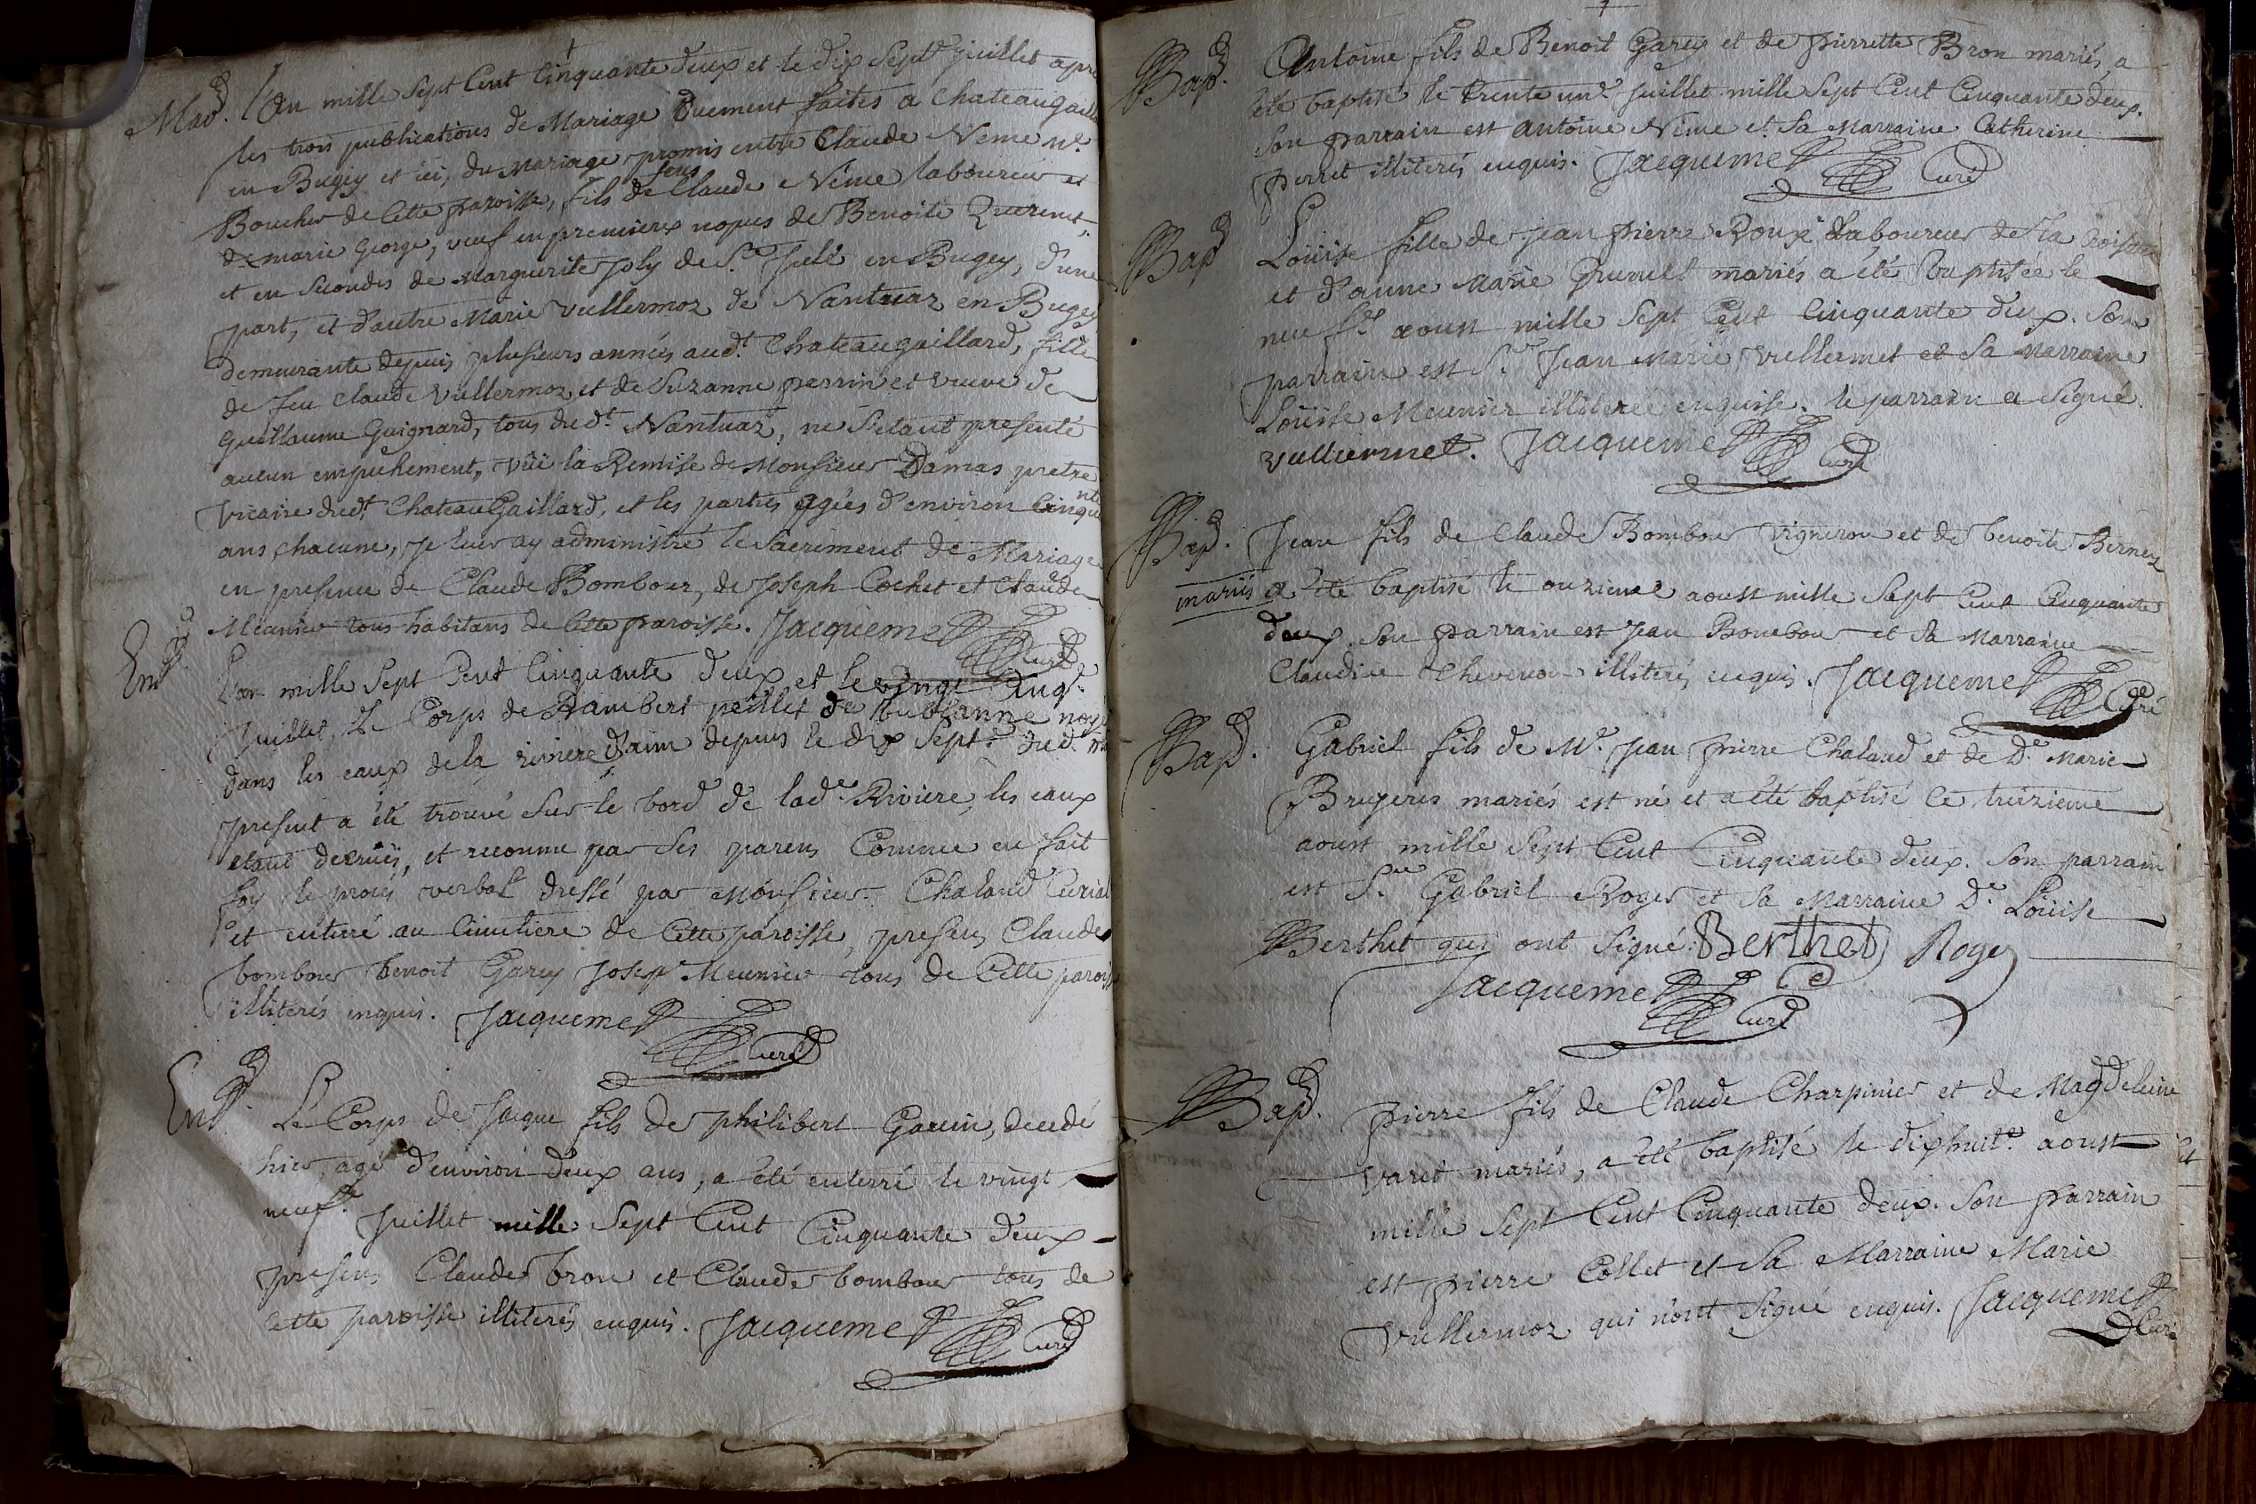 Mad. L'an mille Sept Cent Cinquante deux et le dix Septe Juillet apre
les trois publications de Mariage Duement faites a Chateaugaill
en Bugey et ici, du Mariage promis entre Claude Neme Me
Boucher de Cette paroisse, fils de feus Claude Neme laboureur et
de marie George, veuf en premieres nopces de Benoite
et en Secondes de Marguerite Joly de St. en Bugey, d'une
part, et d'autre Marie Vullermoz de Nantuaz en Bugey
demeurante depuis plusieurs années aud.t Chateaugaillard, fille
de feu Claude Vullermoz et de Suzanne perrin et veuve de
Guillaume Guignard, tous dud.t Nantuaz, ne S'étant presenté
aucun empechement, vüe la Remise de Monsieur Damas pretre
Vicaire dud.t Chateau Gaillard, et les parties agées d'environ Cinqua nte
ans chacune, Je leur ay administré le Sacrement de Mariage
en presence de Claude Bombour, de Joseph Cochet et Claude
Meunier tous habitans de Cette paroisse. Jacquemet Curé
End. L'an mille Sept Cent Cinquante deux et le vingt Cinqe
Juillet, Le Corps de Rambert peillet de noyé
dans les eaux de la riviere d'ain depuis le dix Septe dud. m
present a été trouvé Sur le bord de lade Riviere, les eaux
étant decrues, et reconnu par Ses parens Comme en fait
foy le procés verbal dressé par Monsieur Chaland Curial
et enterré au Cimetiere de Cette paroisse, presens Claude
bombour benoit Garey Josep Meunier tous de Cette parois
illiterés enquis. Jacquemet Curé
End. Le Corps de Jacque fils de philibert Garein, decedé
hier, agé d'environ deux ans, a été enterré le vingt
neufe Juillet mille Sept Cent Cinquante deux
presens Claude bron et Claude bombour tous de
Cette paroisse illiterés enquis. Jacquemet Curé
Bapd. Antoine fils de Benoit Garey et de pierrette Bron mariés, a
été baptisé le trente une Juillet mille Sept Cent Cinquante deux.
Son parrain est Antoine Nime et Sa Marraine Catherine
perret illiterés enquis. Jacquemet Curé
Bapd Loüise fille de Jean pierre Roux Laboureur de la
et d'anne Marie mariés a été baptisée le
neufe aoust mille Sept Cent Cinquante deux. Son
parrain est Sr. Jean Marie Vullermet et Sa Marraine
Loüise Meunier illiterée enquise. le parrain a Signé.
Vulliermet. Jacquemet Curé
Bapd. Jean fils de Claude Bombour Vigneron et de benoite
mariés a été baptisé le onzieme aoust mille Sept Cent Cinquante
deux. Son parrain est Jean Bombour et Sa Marraine
Claudine Thevenon illiterés enquis. Jacquemet Curé
Bapd. Gabriel fils de Me. Jean pierre Chaland et de De. Marie
Brugeres mariés est né et a été baptisé Ce treizieme
aoust mille Sept Cent Cinquante deux. Son parrain
est Sr. Gabriel Roger et Sa Marraine De. Loüise
Berthet qui ont Signé. Berthet Roger
Jacquemet Curé
Bapd. pierre fils de Claude Charpinier et de Magdeleine
Varet mariés, a été baptisé le dixhuite aoust
mille Sept Cent Cinquante deux. Son parrain
est pierre Collet et Sa Marraine Marie
Vullermoz qui n'ont Signé enquis. Jacquemet
Curé